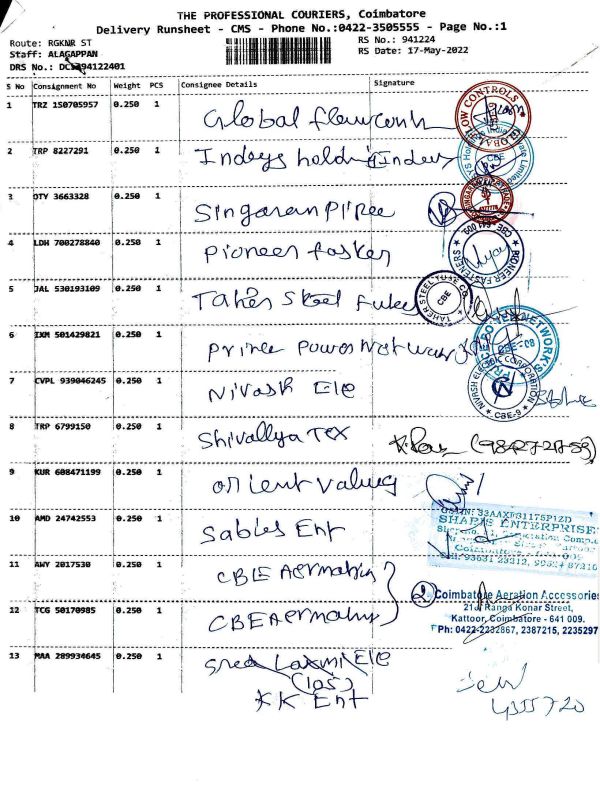 THE PROFESSIONAL COURIERS, Coimbatore
Delivery Runsheet - CMS - Phone No.:0422-3505555 - Page No.:1
Route: RGKNR ST
RS No.: 941224
Staff: ALAGAPPAN
RS Date: 17-May-2022
DRS No.: 94122401
S No Consignment No Weight PCS Consignee Details Signature
1 TRZ 150705957 0.250 1 Global flow
GLOBAL FLOW CONTROLS
2 TRP 8227291 0.250 1 Indsys holding
CBE
3 OTY 3663328 0.250 1 Singaran
4 LDH 700278840 0.250 1 pioneer fasker
PIONEER FASTENERS CBE - 641 009.
5 JAL 530193109 0.250 1 Taher Steel
TAHER STEEL TUBE CO. CBE
6 IXM 501429821 0.250 1 Prince Power
CBE-08
7 CVPL 939046245 0.250 1 Nivash Ele
NIVASH ELECTRIC CORPORATION CBE-9
8 TRP 6799150 0.250 1 Shivallya Tex
9 KUR 608471199 0.250 1 orient valung
10 AMD 24742553 0.250 1 Sables Ent
SHARP ENTERPRISE
11 AWY 2017530 0.250 1 CBE
12 TCG 50170985 0.250 1 CBE
2
Coimbatore Aeration Accessories
21a, Ranga Konar Street,
Kattoor, Coimbatore - 641 009.
Ph: 0422-2232867, 2387215, 2235297
13 MAA 289934645 0.250 1 Sree Laxmi Ele
(105)
KK Ent